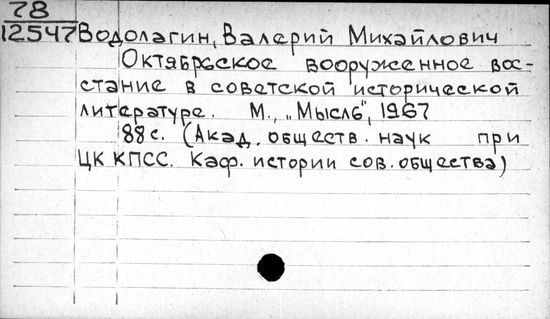 78
12547 Водолагин, Валерий Михайлович
Октябрьское вооруженное вос-
стание в советской исторической
литературе. М., „Мысль", 1967
88 с. (Акад. обществ. наук при
ЦК КПСС. Каф. истории сов. общества)